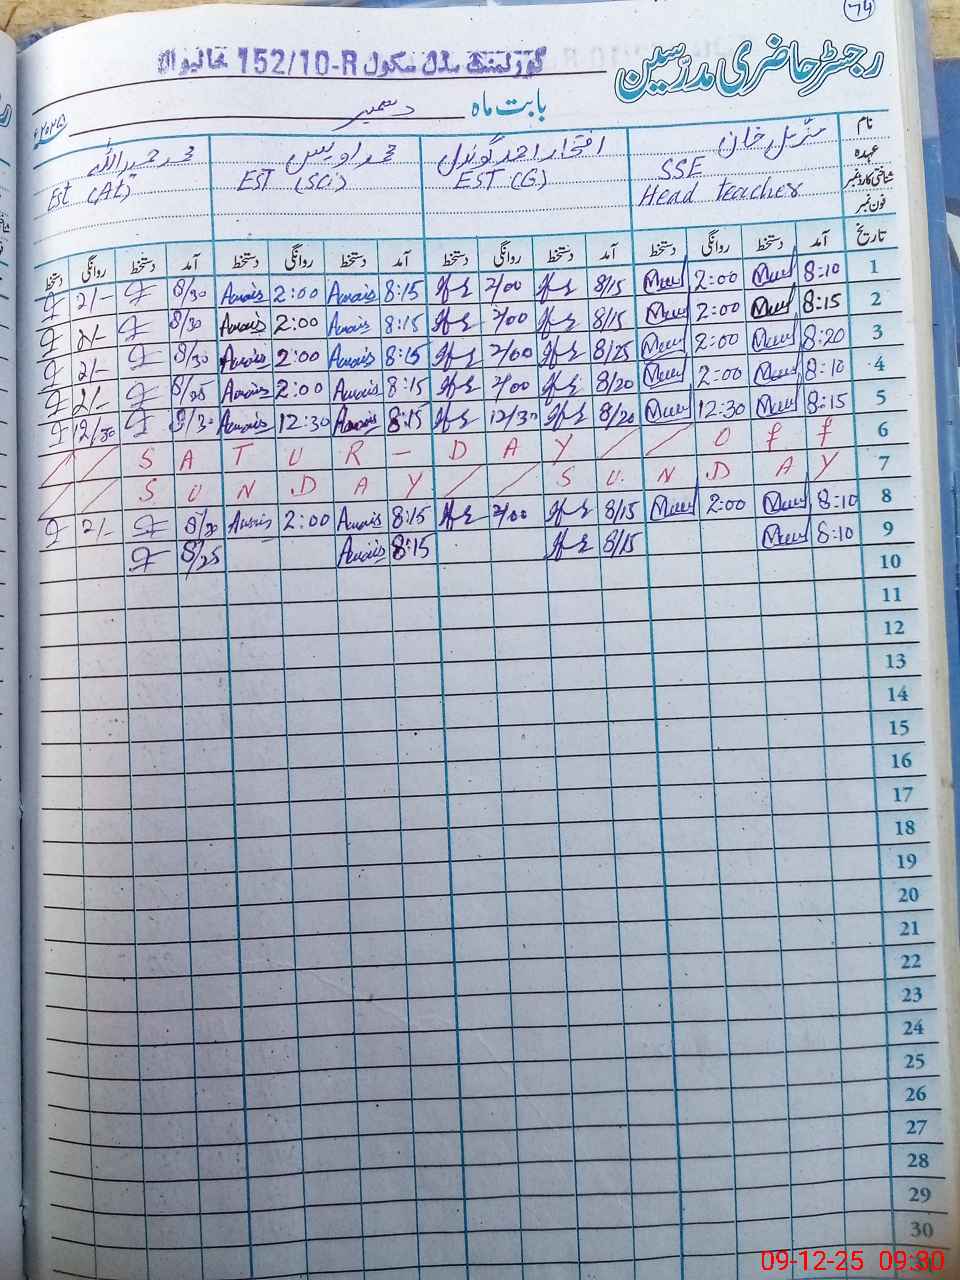 74
رجسٹر حاضری مدرسین
گورنمنٹ مڈل سکول 152/10-R خانیوال
بابت ماہ دسمبر ۲۰۲۵ء
نام مزمل خان افتخار احمد گوندل محمد اویس محمد حمید اللہ
عہدہ SSE EST (G) EST (SCi) Est (At)
شناختی کارڈ نمبر Head teacher
فون نمبر
تاریخ آمد دستخط روانگی دستخط آمد دستخط روانگی دستخط آمد دستخط روانگی دستخط آمد دستخط روانگی دستخط
1 8:10 2:00 8/15 2/00 8:15 Awais 2:00 Awais 8/30 2/-
2 8:15 2:00 8/15 2/00 8:15 Awais 2:00 Awais 8/30 2/-
3 8:20 2:00 8/25 2/00 8:15 Awais 2:00 Awais 8/30 2/-
4 8:10 2:00 8/20 2/00 8:15 Awais 2:00 Awais 8/25 2/-
5 8:15 12:30 8/20 12/30 8:15 Awais 12:30 Awais 8/30 12/30
/ / S A T U R - D A Y / / O f f 6
/ / S U N D A Y / / S U N D A Y 7
8 8:10 2:00 8/15 2/00 8:15 Awais 2:00 Awais 8/30 2/-
9 8:10 8/15 8:15 Awais 8/25
10
11
12
13
14
15
16
17
18
19
20
21
22
23
24
25
26
27
28
29
30
09-12-25 09:30